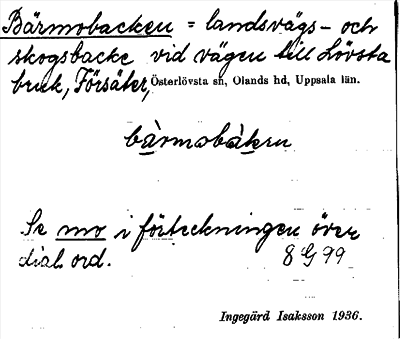 Bärmobacken = landsvägs- och
skogsbacke vid vägen till Lövsta
bruk, Försäter, Österlövsta sn, Olands hd, Uppsala län.
bärmobàken
Se mo i förteckningen över
dial. ord. 8 G 99
Ingegärd Isaksson 1936.